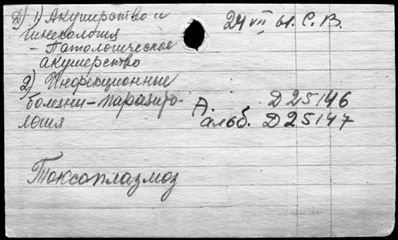 Д) 1) Акушерство и
гинекология
- Патологическое
акушерство
2) Инфекционные
болезни - паразито-
логия
24 VII 61. С. В.
А. Д 25146
альб. Д 25147
Токсоплазмоз